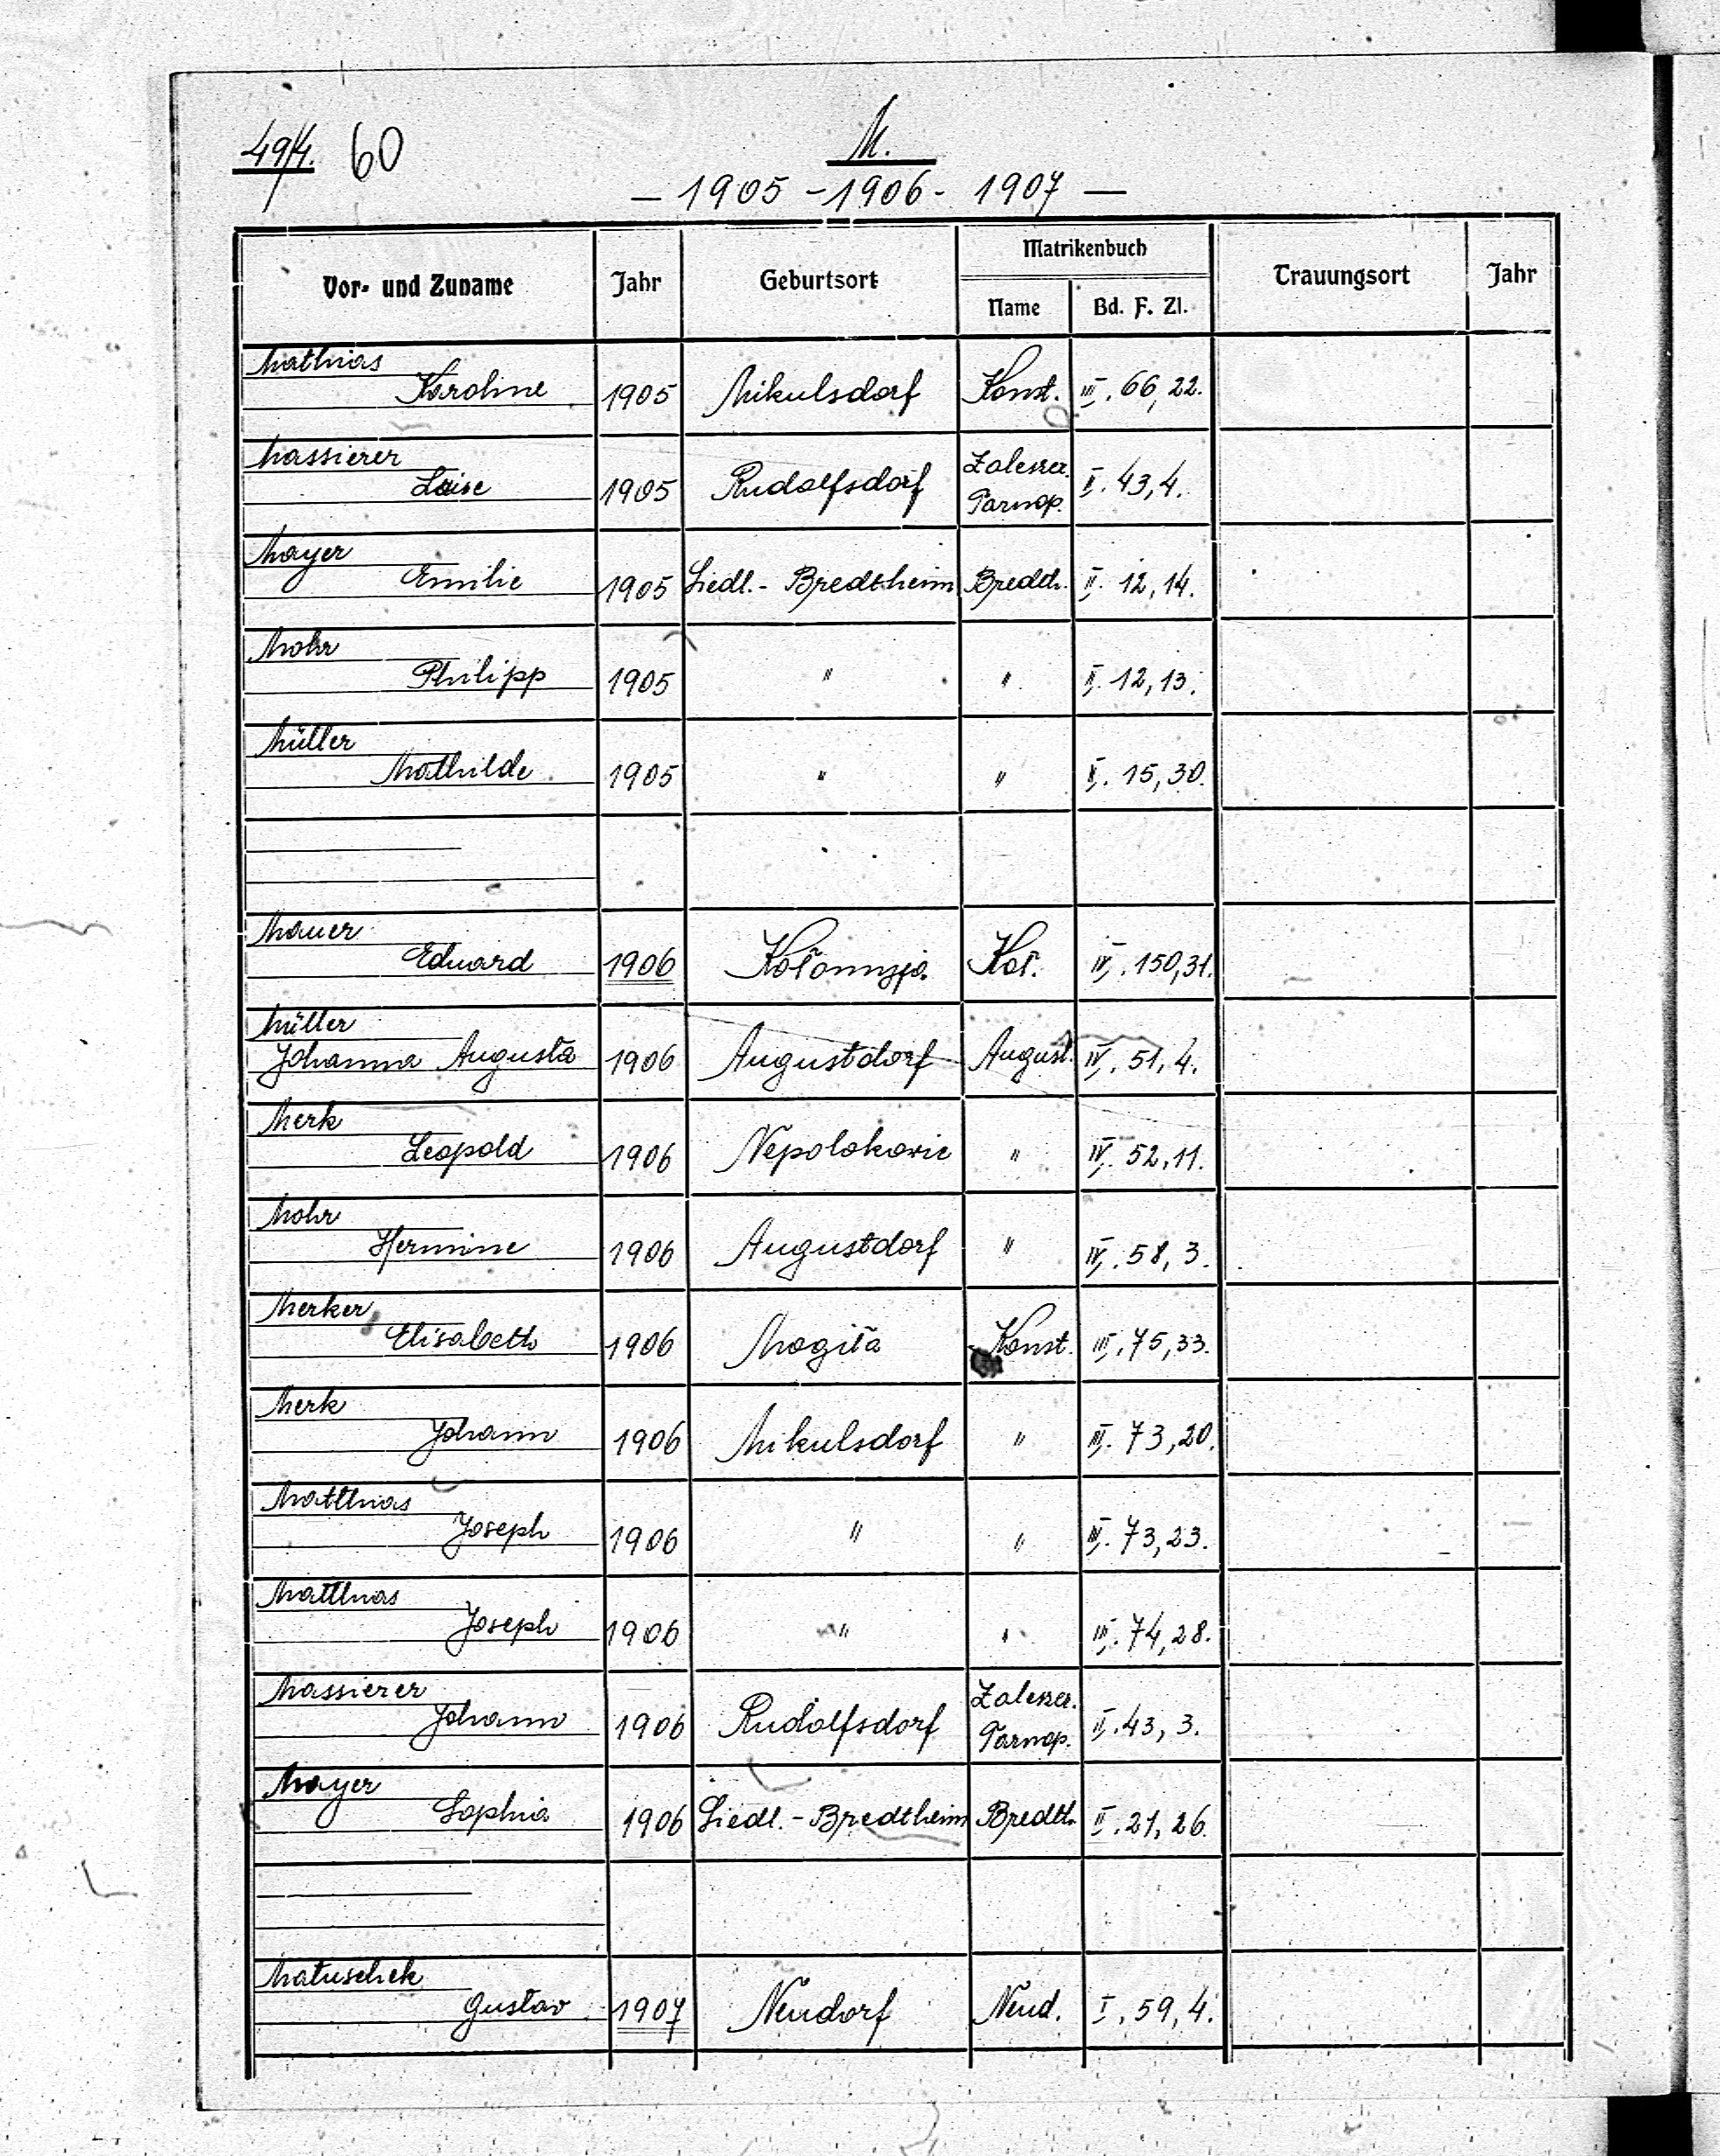 494. 60
M.
— 1905 - 1906 - 1907 —
Vor- und Zuname Jahr Geburtsort Matrikenbuch Trauungsort Jahr
Name Bd. F. Zl.
Mathias
Karoline 1905 Mikulsdorf Konst. III. 66, 22.
Massierer
Luise 1905 Rudolfsdorf Zaleszcz. Tarnop. II. 43, 4.
Mayer
Emilie 1905 Siedl. - Bredtheim Bredth. II. 12, 14.
Mohr
Philipp 1905 " " II. 12, 13.
Müller
Mathilde 1905 " " II. 15, 30.
Mauer
Eduard 1906 Kołomyja Koł. IV. 150, 31.
Müller
Johanna Augusta 1906 Augustdorf August. IV. 51, 4.
Merk
Leopold 1906 Nepolokovic " IV. 52, 11.
Mohr
Hermine 1906 Augustdorf " IV. 58, 3.
Merker
Elisabeth 1906 Mogiła Konst. III. 75, 33.
Merk
Johann 1906 Mikulsdorf " III. 73, 20.
Matthias
Joseph 1906 " " III. 73, 23.
Matthias
Joseph 1906 " " III. 74, 28.
Massierer
Johann 1906 Rudolfsdorf Zaleszcz. Tarnop. II. 43, 3.
Mayer
Sophia 1906 Siedl. - Bredtheim Bredth. II. 21, 26.
Matuschek
Gustav 1907 Neudorf Neud. I. 59, 4.